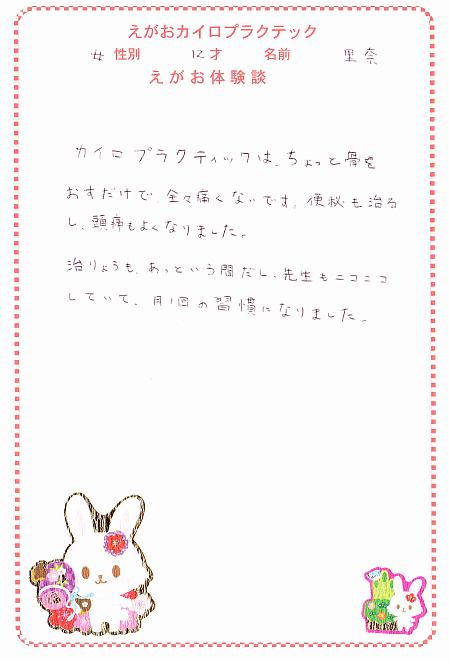 えがおカイロプラクテック
女 性別 12才 名前 里奈
えがお体験談
カイロプラクティックは、ちょっと骨を
おすだけで、全々痛くないです。便秘も治る
し、頭痛もよくなりました。
治りょうも、あっという間だし、先生もニコニコ
していて、月1回の習慣になりました。